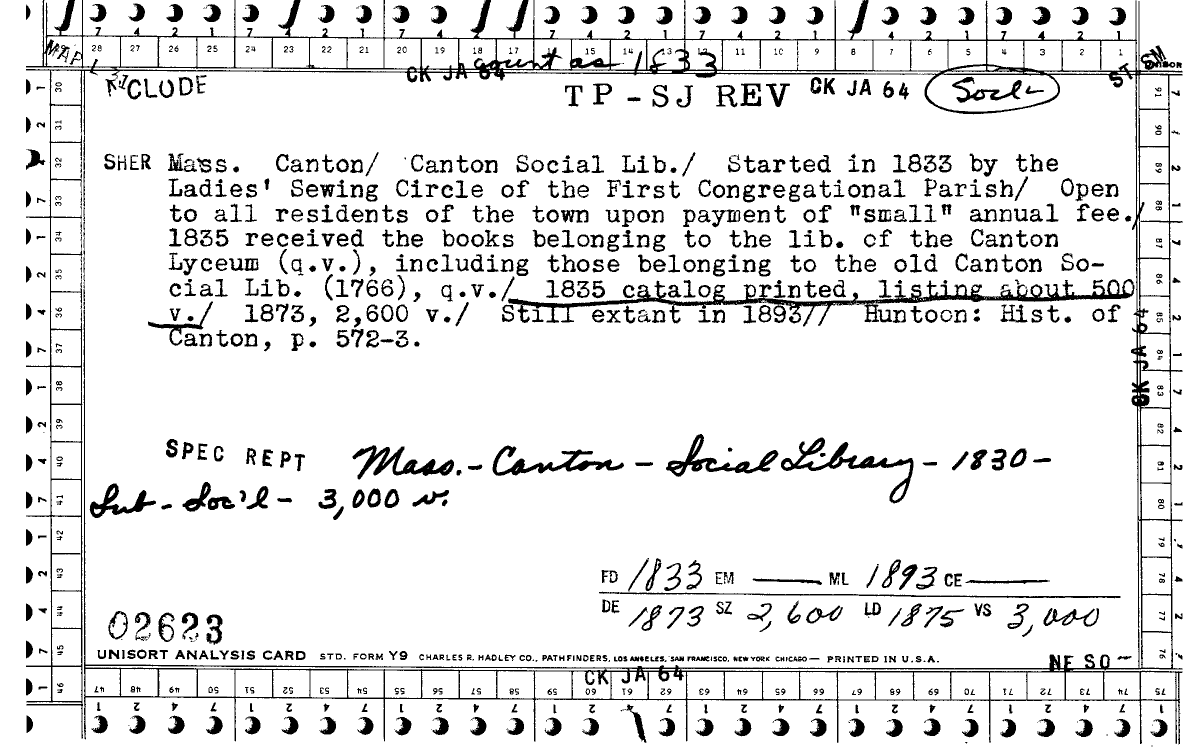 7 4 2 1 7 4 2 1 7 4 2 1 7 4 2 1 7 4 2 1 7 4 2 1 7 4 2 1
28 27 26 25 24 23 22 21 20 19 18 17 16 15 14 13 12 11 10 9 8 7 6 5 4 3 2 1
count as 1833
CK JA 64
CLUDE
TP-SJ REV CK JA 64 Socl
SHER Mass. Canton/ Canton Social Lib./ Started in 1833 by the
Ladies' Sewing Circle of the First Congregational Parish/ Open
to all residents of the town upon payment of "small" annual fee./
1835 received the books belonging to the lib. of the Canton
Lyceum (q.v.), including those belonging to the old Canton So-
cial Lib. (1766), q.v./ 1835 catalog printed, listing about 500
v./ 1873, 2,600 v./ Still extant in 1893// Huntoon: Hist. of
Canton, p. 572-3.
CK JA 64
SPEC REPT Mass. - Canton - Social Library - 1830 -
Sub - Soc'l - 3,000 v.
FD 1833 EM — ML 1893 CE —
DE 1873 SZ 2,600 LD 1875 VS 3,000
02623
UNISORT ANALYSIS CARD STD. FORM Y9 CHARLES R. HADLEY CO., PATHFINDERS, LOS ANGELES, SAN FRANCISCO, NEW YORK CHICAGO — PRINTED IN U.S.A.
NE SO -
CK JA 64